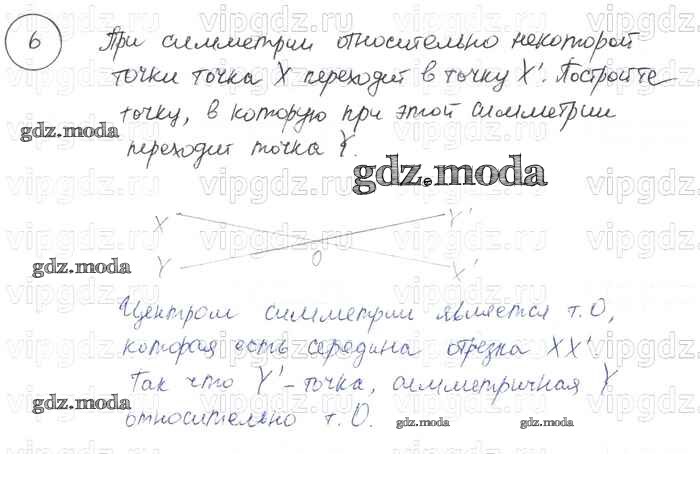 6
При симметрии относительно некоторой
точки точка X переходит в точку X'. Постройте
точку, в которую при этой симметрии
переходит точка Y.
gdz.moda
gdz.moda
X Y'
O
Y X'
gdz.moda
Центром симметрии является т. O,
которая есть середина отрезка XX'
Так что Y' - точка, симметричная Y
gdz.moda
относительно т. O.
gdz.moda
gdz.moda
vipgdz.ru